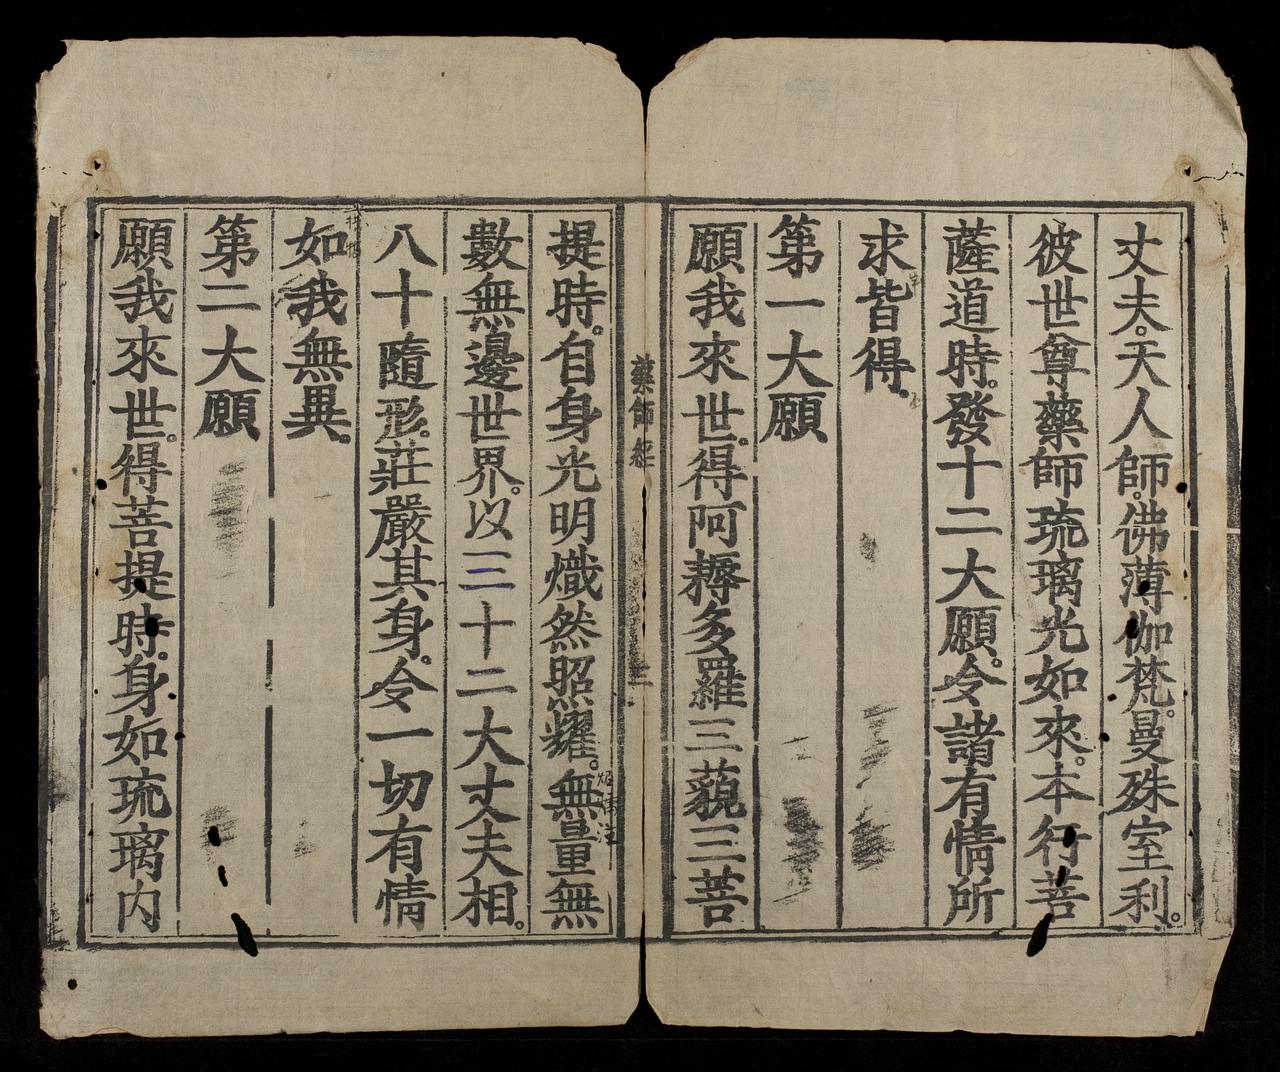 丈夫。天人師。佛薄伽梵。曼殊室利。
彼世尊藥師琉璃光如來。本行菩
薩道時。發十二大願。令諸有情所
求皆得。
第一大願
願我來世。得阿耨多羅三藐三菩
藥師經
提時。自身光明熾然照耀。無量無
數無邊世界。以三十二大丈夫相。
八十隨形。莊嚴其身。令一切有情
如我無異。
第二大願
願我來世。得菩提時。身如琉璃內